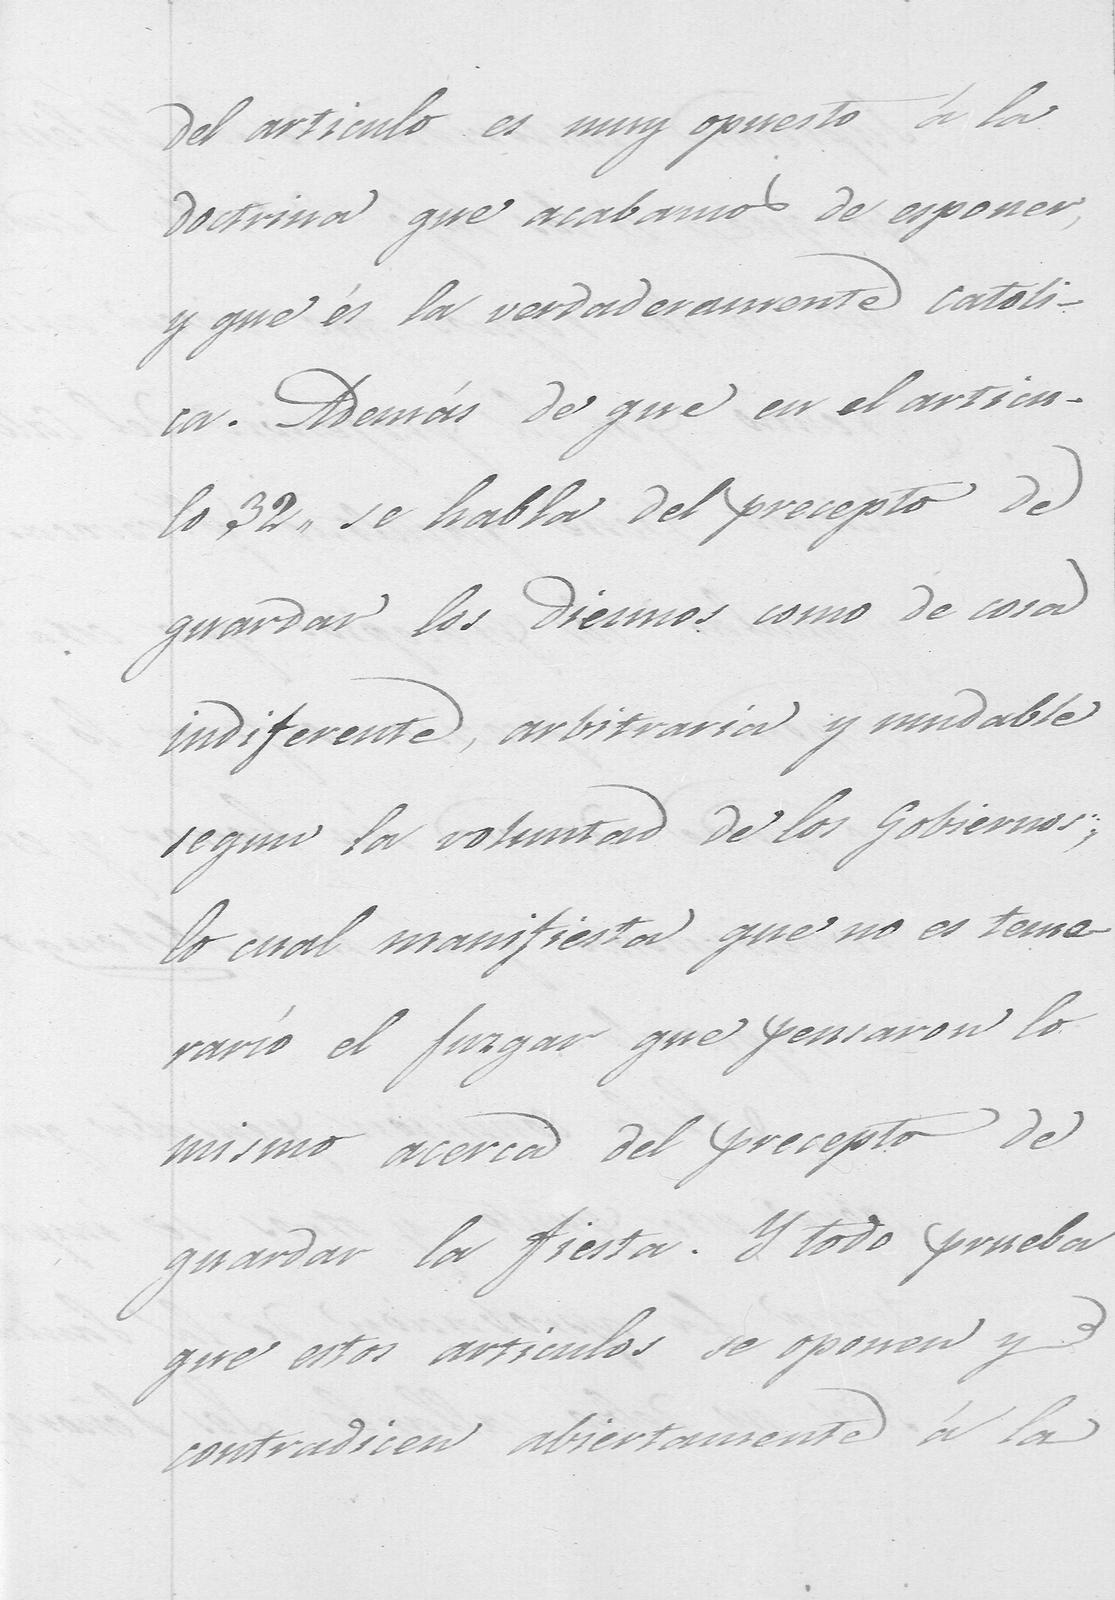 del articulo es muy opuesto á la
doctrina que acabamos de esponer,
y que és la verdaderamente catoli-
ca. Además de que en el articu-
lo 32,, se habla del precepto de
guardar los Diezmos como de cosa
indiferente, arbitraria y mudable
segun la voluntad de los Gobiernos;
lo cual manifiesta que no es teme-
rario el juzgar que pensaron lo
mismo acerca del precepto de
guardar la fiesta. Y todo prueba
que estos articulos se oponen y
contradicen abiertamente á la